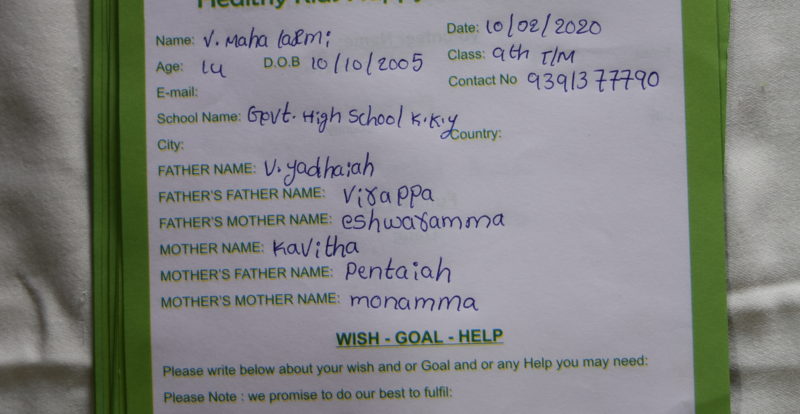 Name: V. Maha laxmi Date: 10/02/2020
Age: 14 D.O.B 10/10/2005 Class: 9th T/M
E-mail: Contact No 9391377790
School Name: Govt. High School K.K.y
City: Country:
FATHER NAME: V. yadhaiah
FATHER'S FATHER NAME: Virappa
FATHER'S MOTHER NAME: eshwaramma
MOTHER NAME: Kavitha
MOTHER'S FATHER NAME: Pentaiah
MOTHER'S MOTHER NAME: monamma
WISH - GOAL - HELP
Please write below about your wish and or Goal and or any Help you may need:
Please Note : we promise to do our best to fulfil: